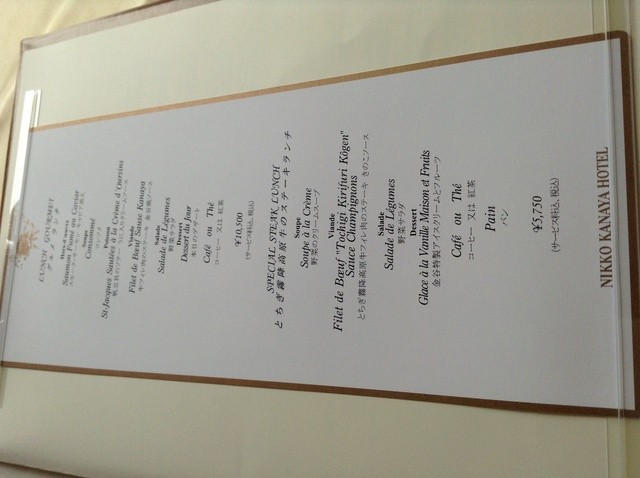 LUNCH GOURMET
グルメランチ
Hors-d'œuvre
Saumon Fumé au Caviar
Soupe
Consommé
Poisson
St-Jacques Sautées à la Crème d'Oursins
帆立貝のソテー うに入りクリームソース
Viande
Filet de Bœuf Sauce Kanaya
牛フィレ肉のステーキ 金谷風ソース
Salade
Salade de Légumes
野菜サラダ
Dessert
Dessert du Jour
本日のデザート
Café ou Thé
コーヒー 又は 紅茶
¥10,500
(サービス料込、税込)
SPECIAL STEAK LUNCH
とちぎ霧降高原牛のステーキランチ
Soupe
Soupe à la Crème
野菜のクリームスープ
Viande
Filet de Bœuf "Tochigi Kirifuri Kôgen"
Sauce Champignons
とちぎ霧降高原牛フィレ肉のステーキ きのこソース
Salade
Salade de Légumes
野菜サラダ
Dessert
Glace à la Vanille Maison et Fruits
金谷特製アイスクリームとフルーツ
Café ou Thé
コーヒー 又は 紅茶
Pain
パン
¥5,750
(サービス料込、税込)
NIKKO KANAYA HOTEL